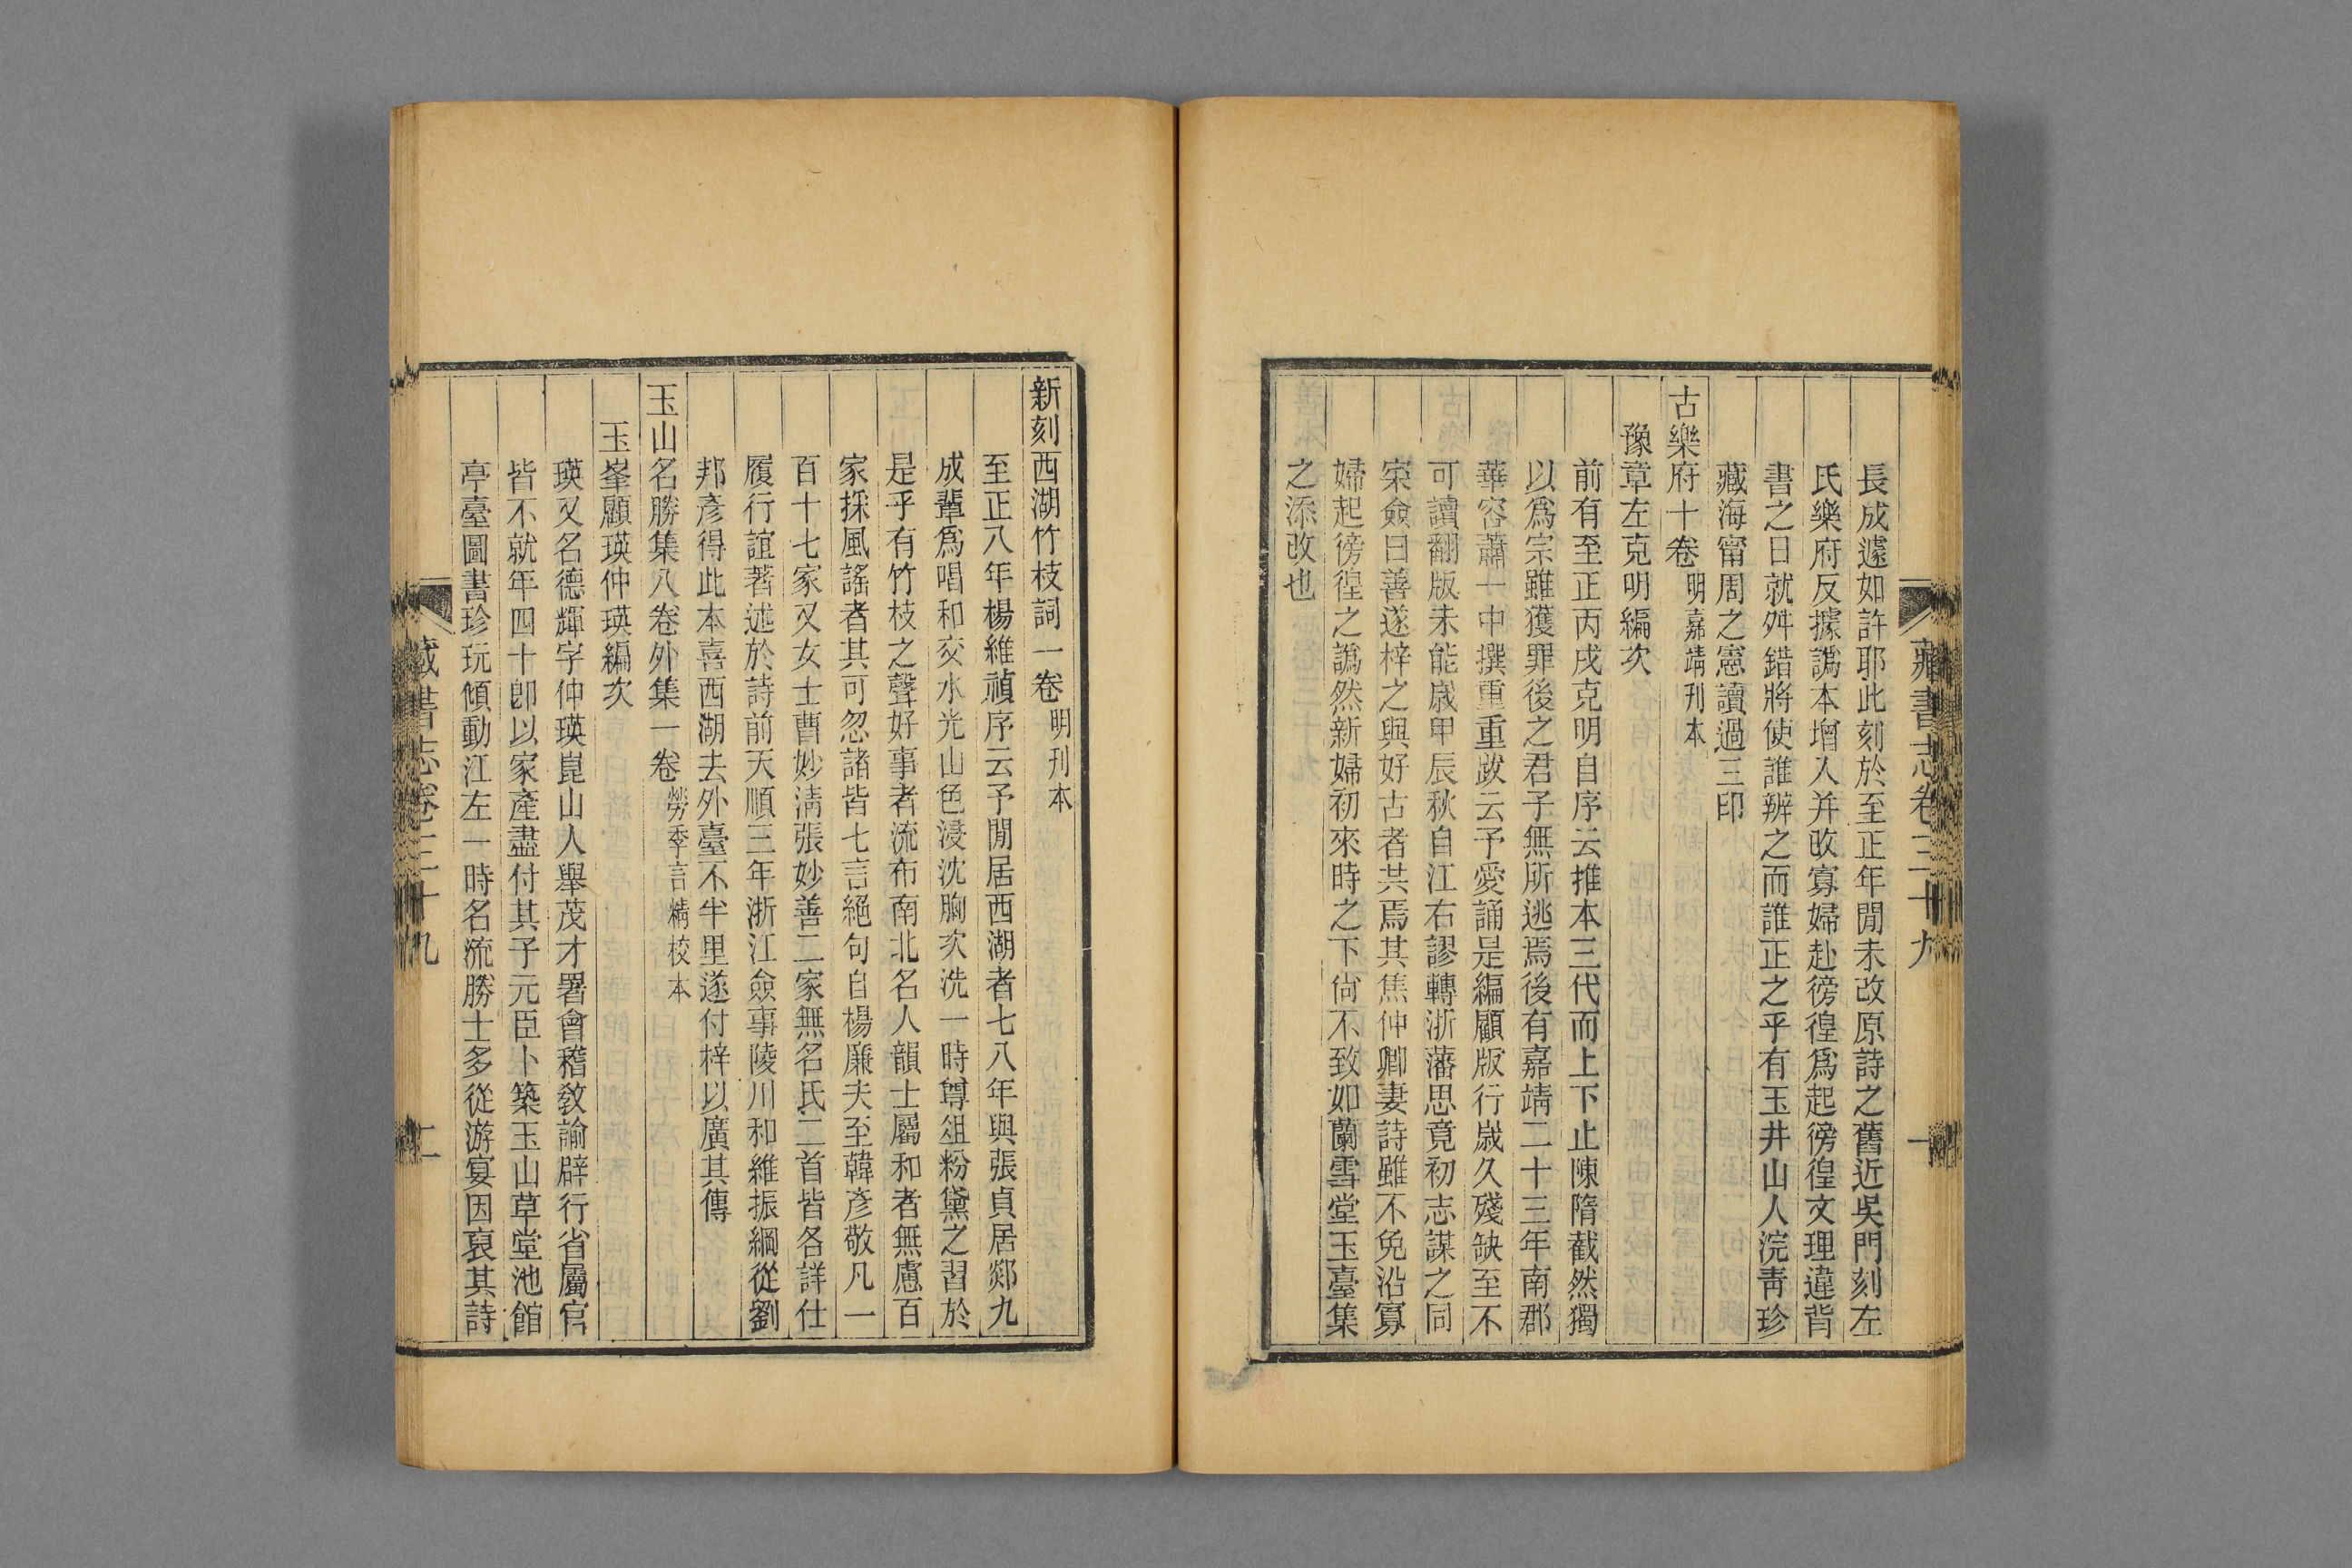 藏書志卷三十九
一
長成遽如許耶此刻於至正年閒未改原詩之舊近吳門刻左
氏樂府反據譌本增入并改寡婦赴徬徨爲起徬徨文理違背
書之日就舛錯將使誰辨之而誰正之乎有玉井山人浣靑珍
藏海甯周之憲讀過三印
古樂府十卷明嘉靖刊本
豫章左克明編次
前有至正丙戌克明自序云推本三代而上下止陳隋截然獨
以爲宗雖獲罪後之君子無所逃焉後有嘉靖二十三年南郡
華容蕭一中撰重重跋云予愛誦是編顧版行歲久殘缺至不
可讀翻版未能歲甲辰秋自江右謬轉浙藩思竟初志謀之同
寀僉曰善遂梓之與好古者共焉其焦仲卿妻詩雖不免沿寡
婦起徬徨之譌然新婦初來時之下尙不致如蘭雪堂玉臺集
之添改也
新刻西湖竹枝詞一卷明刊本
至正八年楊維禎序云予閒居西湖者七八年與張貞居郯九
成輩爲唱和交水光山色浸沈胸次洗一時尊俎粉黛之習於
是乎有竹枝之聲好事者流布南北名人韻士屬和者無慮百
家採風謠者其可忽諸皆七言絕句自楊廉夫至韓彥敬凡一
百十七家又女士曹妙淸張妙善二家無名氏二首皆各詳仕
履行誼著述於詩前天順三年浙江僉事陵川和維振綱從劉
邦彥得此本喜西湖去外臺不半里遂付梓以廣其傳
玉山名勝集八卷外集一卷勞季言精校本
玉峯顧瑛仲瑛編次
瑛又名德輝字仲瑛崑山人舉茂才署會稽敎諭辟行省屬官
皆不就年四十卽以家產盡付其子元臣卜築玉山草堂池館
亭臺圖書珍玩傾動江左一時名流勝士多從游宴因裒其詩
藏書志卷三十九
二